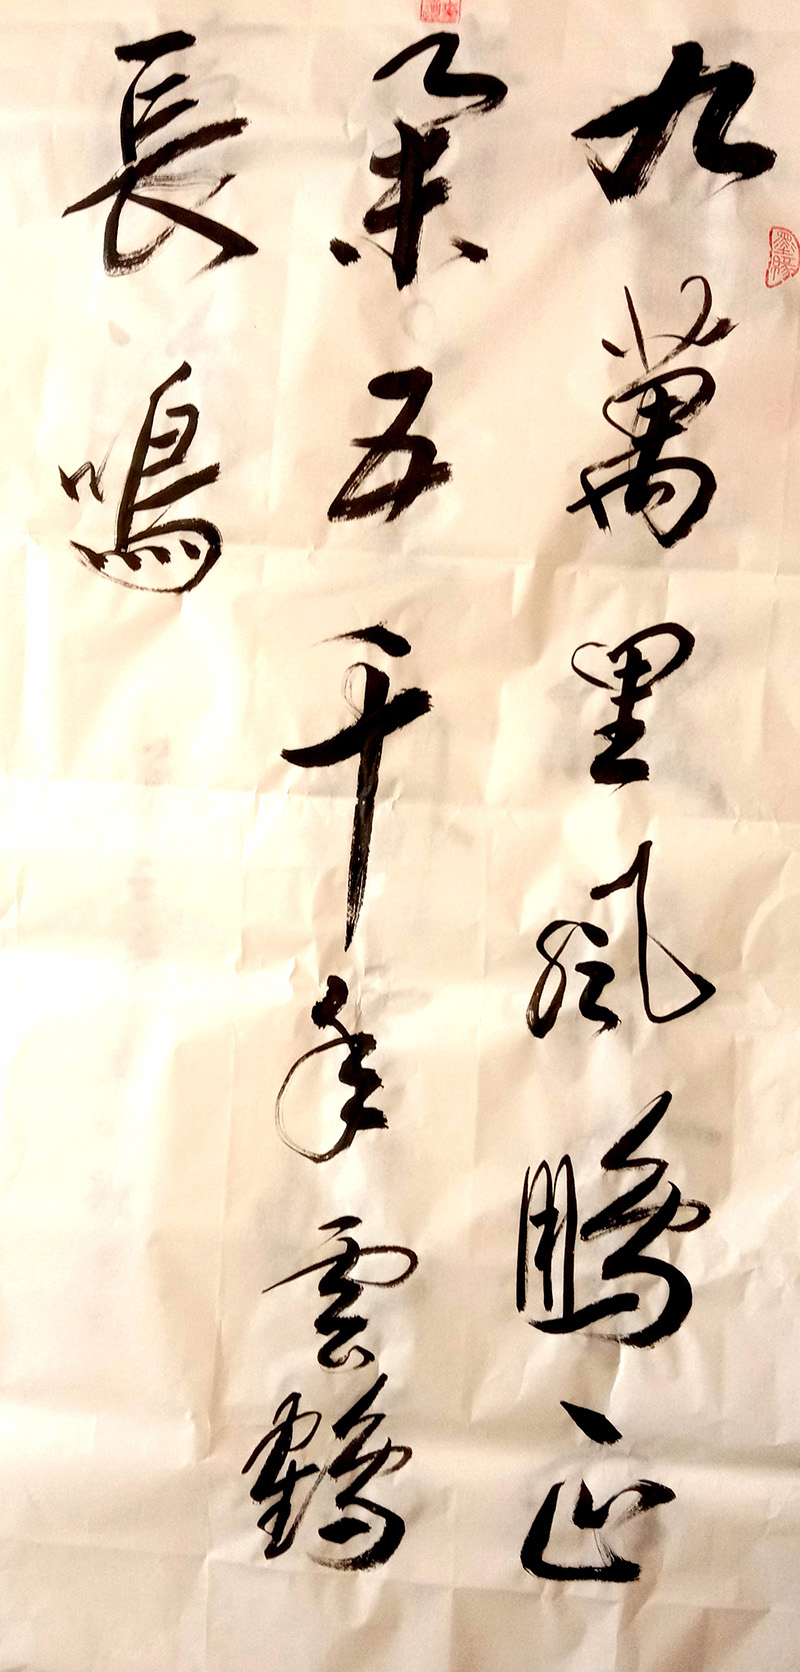 九萬里風鵬正
舉五千年雲鶴
長鳴
墨緣